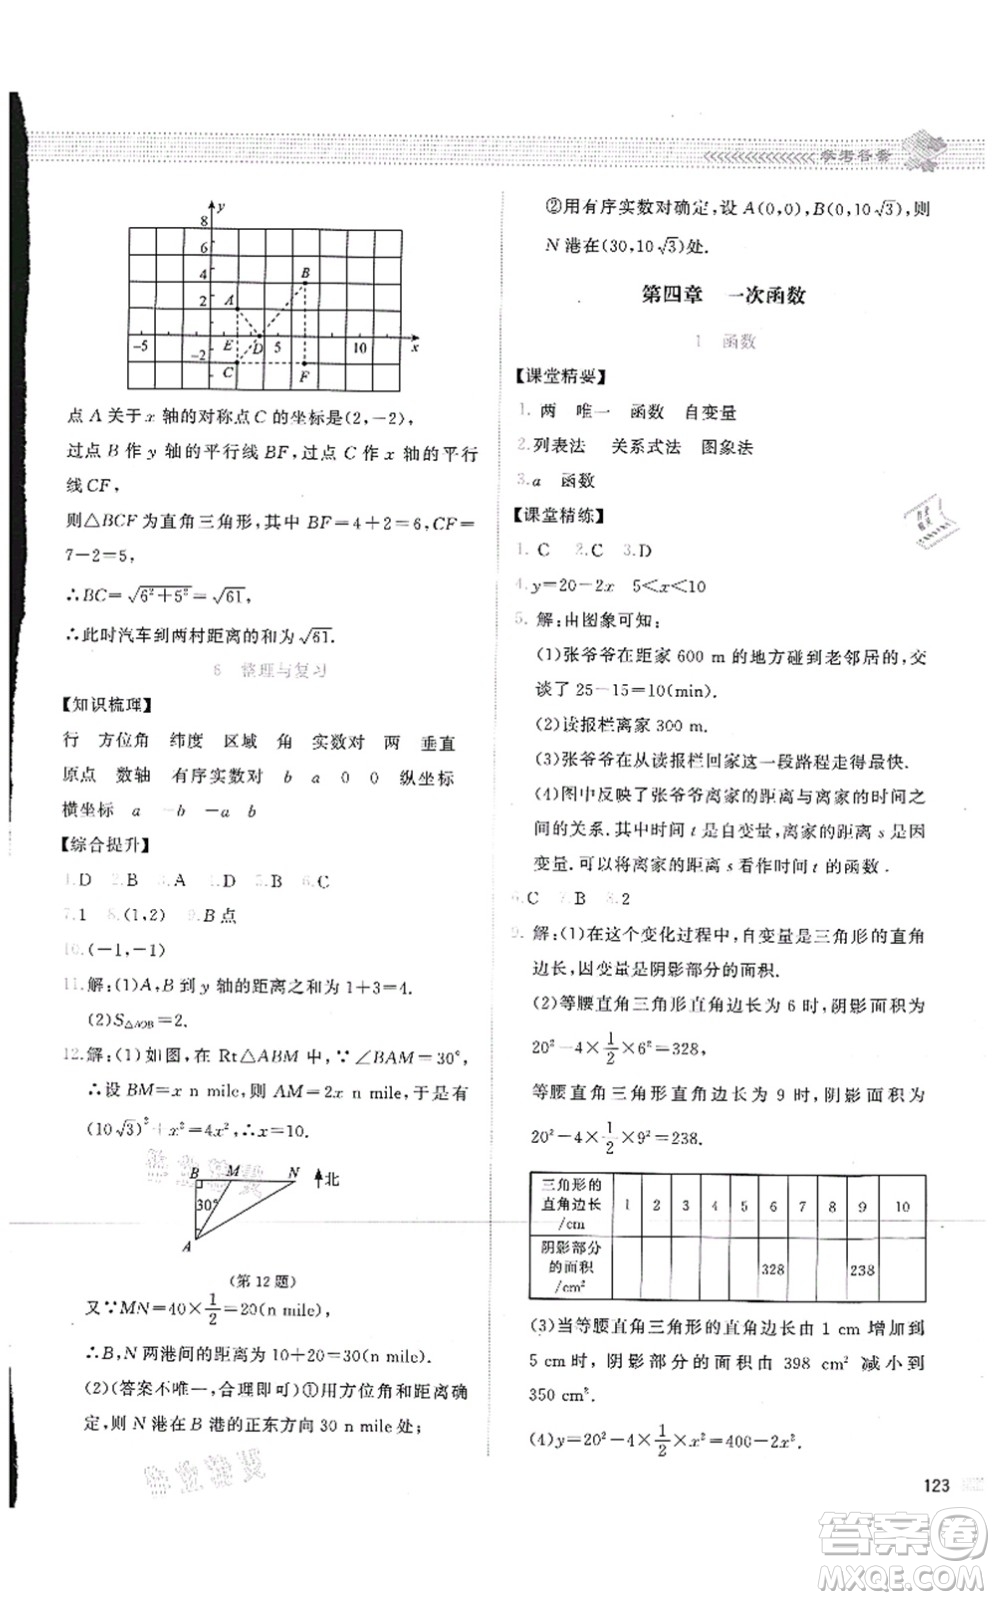 参考答案
y
8
6
4
2
-2
-5
5
10
x
A
B
C
D
E
F
点 A 关于 x 轴的对称点 C 的坐标是(2,-2),
过点 B 作 y 轴的平行线 BF,过点 C 作 x 轴的平行
线 CF,
则△BCF 为直角三角形,其中 BF=4+2=6,CF=
7-2=5,
∴BC=√(6²+5²)=√61,
∴此时汽车到两村距离的和为√61.
6 整理与复习
【知识梳理】
行 方位角 纬度 区域 角 实数对 两 垂直
原点 数轴 有序实数对 b a 0 0 纵坐标
横坐标 a -b -a b
【综合提升】
1.D 2.B 3.A 4.D 5.B 6.C
7.1 8.(1,2) 9.B 点
10.(-1,-1)
11.解:(1)A,B 到 y 轴的距离之和为 1+3=4.
(2)S△AOB=2.
12.解:(1)如图,在 Rt△ABM 中,∵∠BAM=30°,
∴设 BM=x n mile,则 AM=2x n mile,于是有
(10√3)²+x²=4x²,∴x=10.
B M N 北
30°
A
(第 12 题)
又∵MN=40×1/2=20(n mile),
∴B,N 两港间的距离为 10+20=30(n mile).
(2)(答案不唯一,合理即可)①用方位角和距离确
定,则 N 港在 B 港的正东方向 30 n mile 处;
②用有序实数对确定,设 A(0,0),B(0,10√3),则
N 港在(30,10√3)处.
第四章 一次函数
1 函数
【课堂精要】
1.两 唯一 函数 自变量
2.列表法 关系式法 图象法
3.a 函数
【课堂精练】
1.C 2.C 3.D
4.y=20-2x 5<x<10
5.解:由图象可知:
(1)张爷爷在距家 600 m 的地方碰到老邻居的,交
谈了 25-15=10(min).
(2)读报栏离家 300 m.
(3)张爷爷从读报栏回家这一段路程走得最快.
(4)图中反映了张爷爷离家的距离与离家的时间之
间的关系.其中时间 t 是自变量,离家的距离 s 是因
变量.可以将离家的距离 s 看作时间 t 的函数.
6.C 7.B 8.2
9.解:(1)在这个变化过程中,自变量是三角形的直角
边长,因变量是阴影部分的面积.
(2)等腰直角三角形直角边长为 6 时,阴影面积为
20²-4×1/2×6²=328,
等腰直角三角形直角边长为 9 时,阴影面积为
20²-4×1/2×9²=238.
三角形的
直角边长
/cm
1 2 3 4 5 6 7 8 9 10
阴影部分
的面积
/cm²
328 238
(3)当等腰直角三角形的直角边长由 1 cm 增加到
5 cm 时,阴影部分的面积由 398 cm² 减小到
350 cm².
(4)y=20²-4×1/2×x²=400-2x².
123
答案卷
MXQE.COM